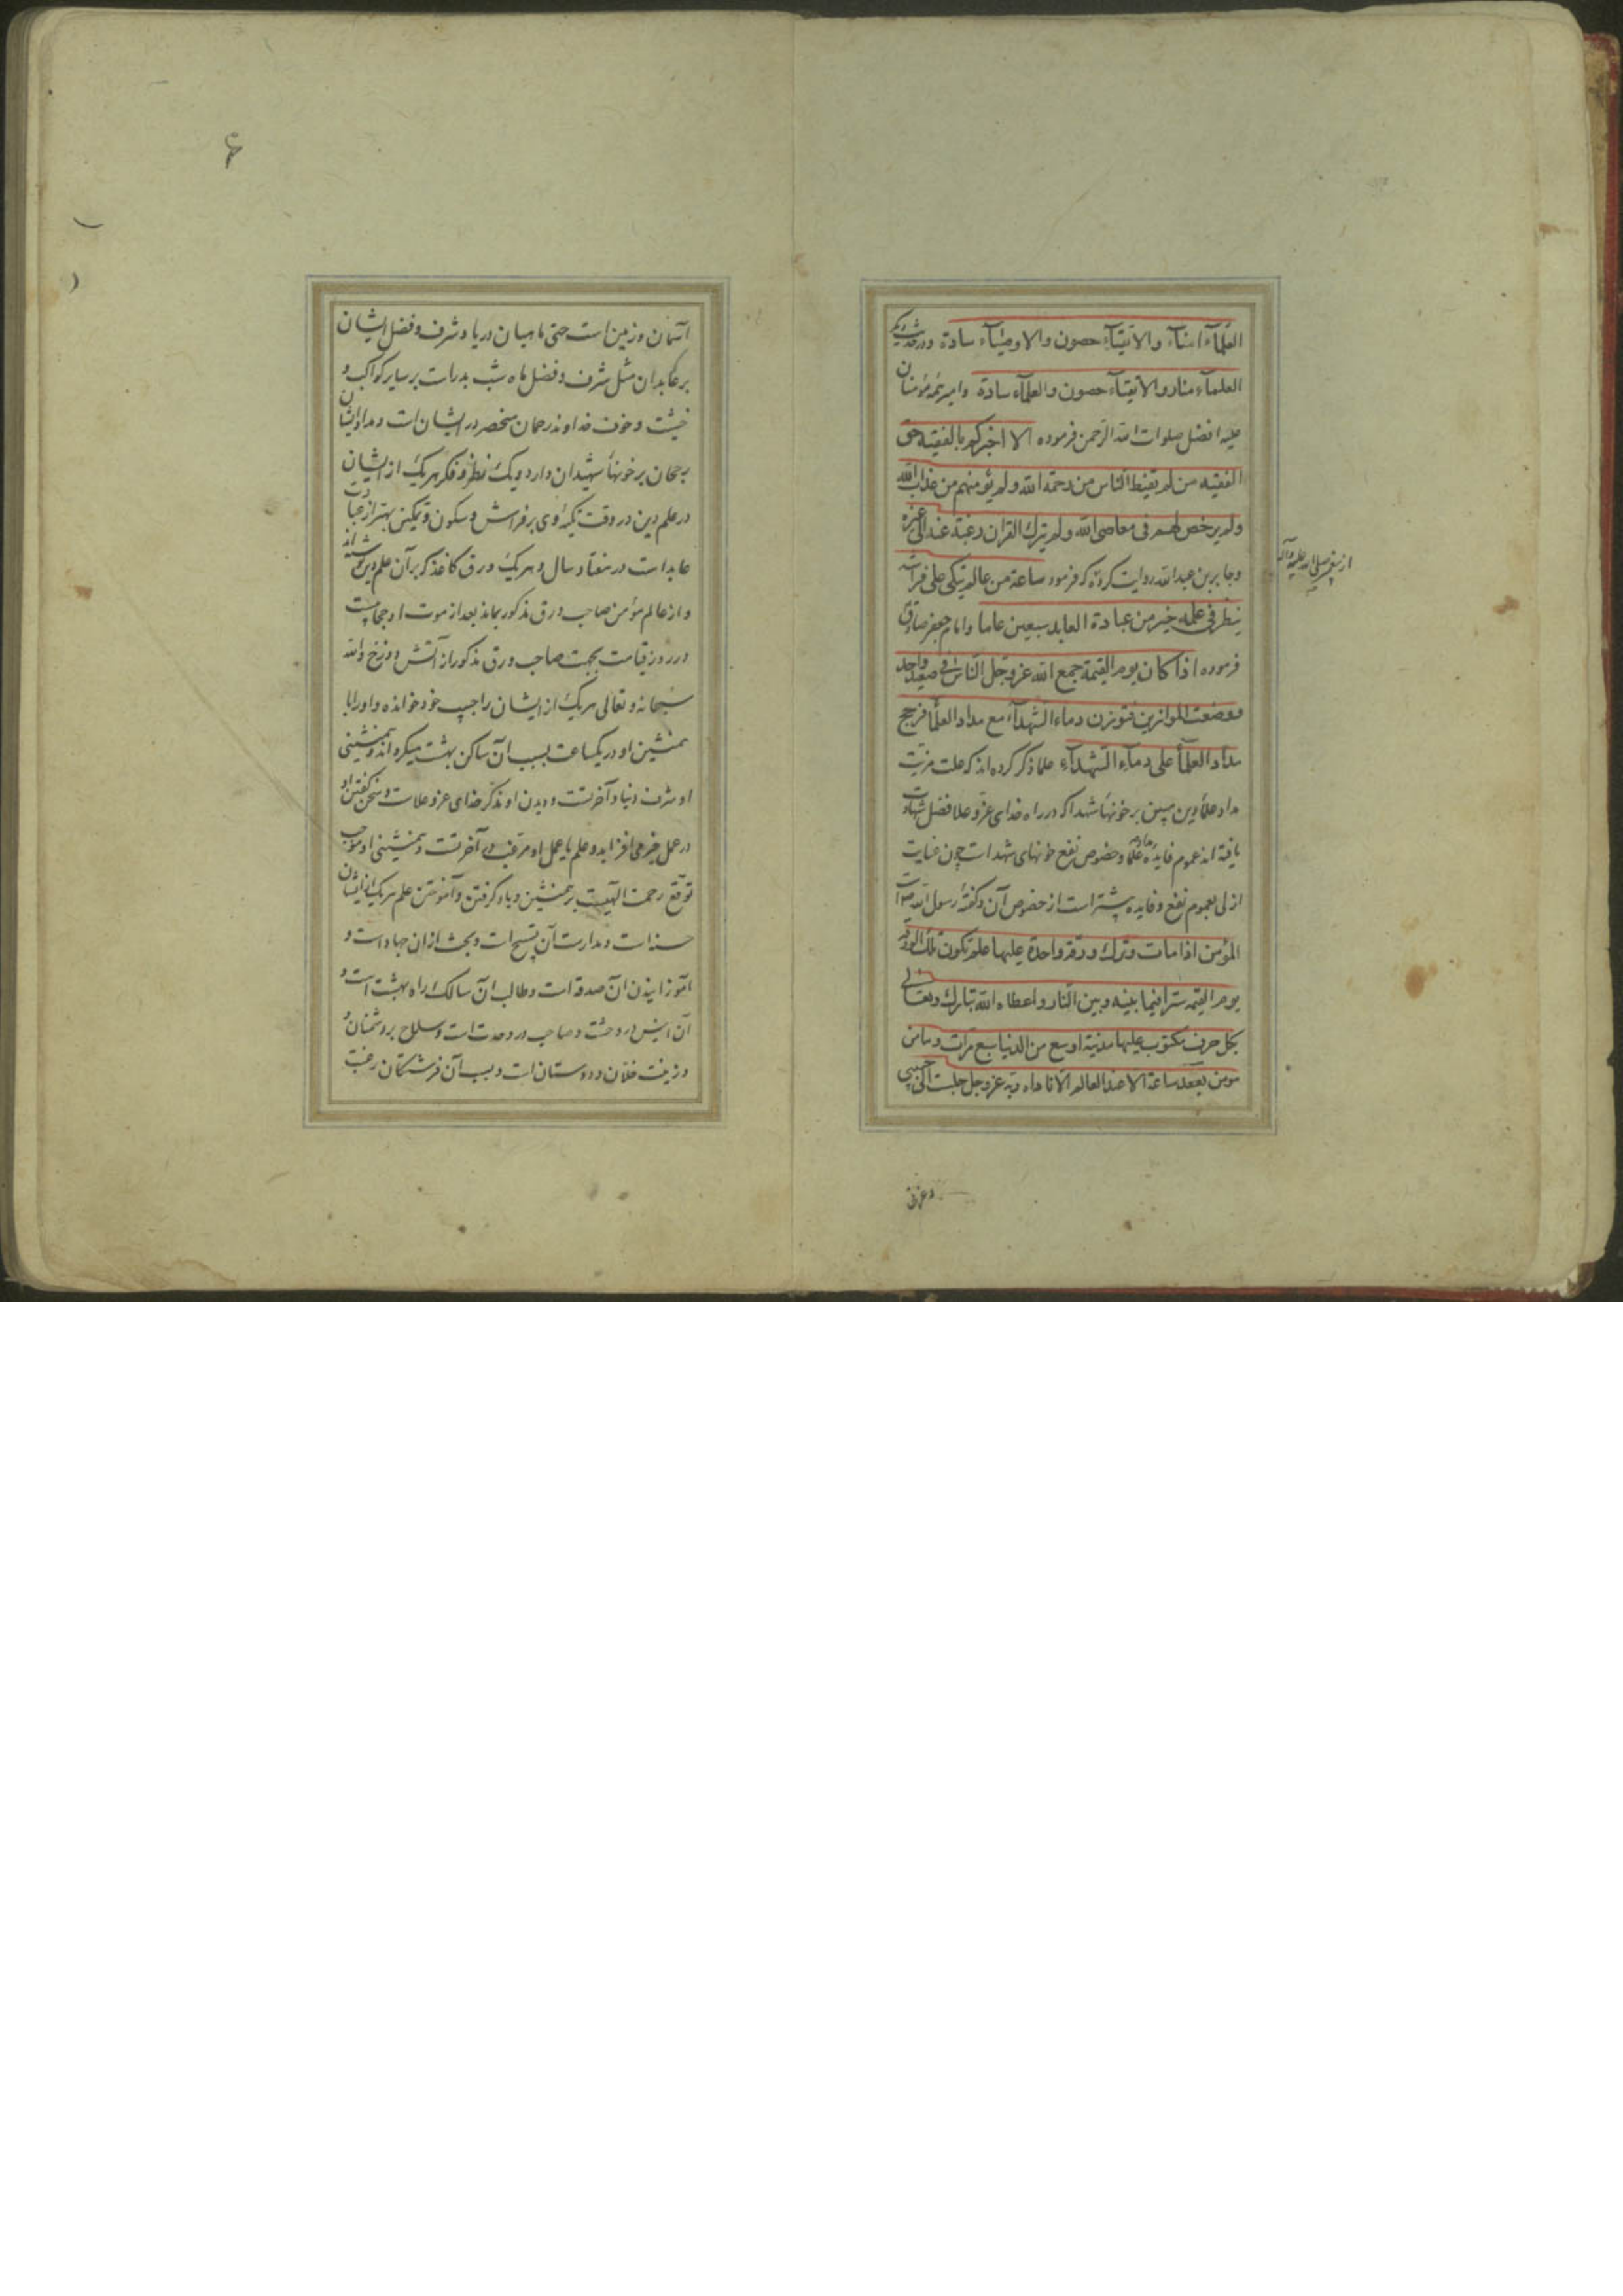 العلمآء امنآء والاتقیآء حصون والاوصیآء سادة ودر حدیث دیکر
العلمآء منار والاتقیآء حصون والعلمآء سادة وامیر مؤمنان
علیه افضل صلوات الله الرحمن فرموده الا اخبرکم بالفقیه حق
الفقیه من لم یقنط الناس من رحمة الله ولم یؤمنهم من عذاب الله
ولم یرخص لهم فی معاصی الله ولم یترک القران رغبة عنه الی غیره
وجابر بن عبدالله روایت کرده که فرمود ساعة من عالم یتکی علی فراشه
ینظر فی علمه خیر من عبادة العابد سبعین عاما وامام جعفر صادق
از پیغمبر صلی الله علیه وآله
فرموده اذا کان یوم القیمة جمع الله عز وجل الناس فی صعید واحد
ووضعت الموازین فتوزن دماء الشهدآء مع مداد العلمآ فرجح
مداد العلمآ علی دمآء الشهدآء علما ذکر کرده اند که علت مزیت
مداد علمآ دین مبین بر خونهآ شهدا که در راه خدای عز و علا فضل شهادت
یافته اند عموم فایدهٔ مداد علما و خصوص نفع خونهای شهداست چون عنایت
ازلی بعموم نفع و فایده بیشتر است از خصوص آن و کفتهٔ رسول الله است
المؤمن اذا مات وترک ورقة واحدة علیها علم تکون تلک الورقة
یوم القیمة سترا فیما بینه وبین النار واعطاه الله تبارک وتعالی
بکل حرف مکتوب علیها مدینة اوسع من الدنیا سبع مرات ومامن
مومن یقعد ساعة الا عند العالم الا ناداه ربه عز وجل جلست الی حبیبی
وعزتی
۴
آسمان و زمین است حتی ماهیان دریا و شرف و فضل ایشان
بر عابدان مثل شرف و فضل ماه شب بدر است بر سایر کواکب و
خشیت و خوف خداوند رحمان منحصر در ایشان است و مداد ایشان
رجحان بر خونهآ شهیدان دارد و یک نظر و فکر هریک از ایشان
در علم دین در وقت تکیهٔ وی بر فراش و سکون و تمکین بهتر از عبادت
عابد است در هفتاد سال و هریک ورق کاغذ که بر آن علم دین نوشته اند
و از عالم مؤمن صاحب ورق مذکور بماند بعد از موت او حجابیست
در روز قیامت بجهت صاحب ورق مذکور از آتش دوزخ والله
سبحانه و تعالی هریک از ایشان را حبیب خود خوانده و او را با
همنشین او در یکساعت بسبب آن ساکن بهشت میکرداند و همنشینی
او شرف دنیا و آخرتست و دیدن او مذکر خدای عز و علاست و سخن کفتن او
در عمل خیر می افزاید و علم با عمل او مرغب در آخرتست و همنشینی او موجب
توقع رحمت الهیست بر همنشین و یاد کرفتن و آموختن علم هریک از ایشان
حسنه است و مدارست آن تسبیح است و بحث از ان جهاد است و
آموزانیدن ان صدقه است و طالب ان سالک راه بهشت است و
آن انیس در وحشت و صاحب در وحدت است و سلاح بر دشمنان و
و زینت خلان و دوستان است و بسبب آن فرشتکان رغبت